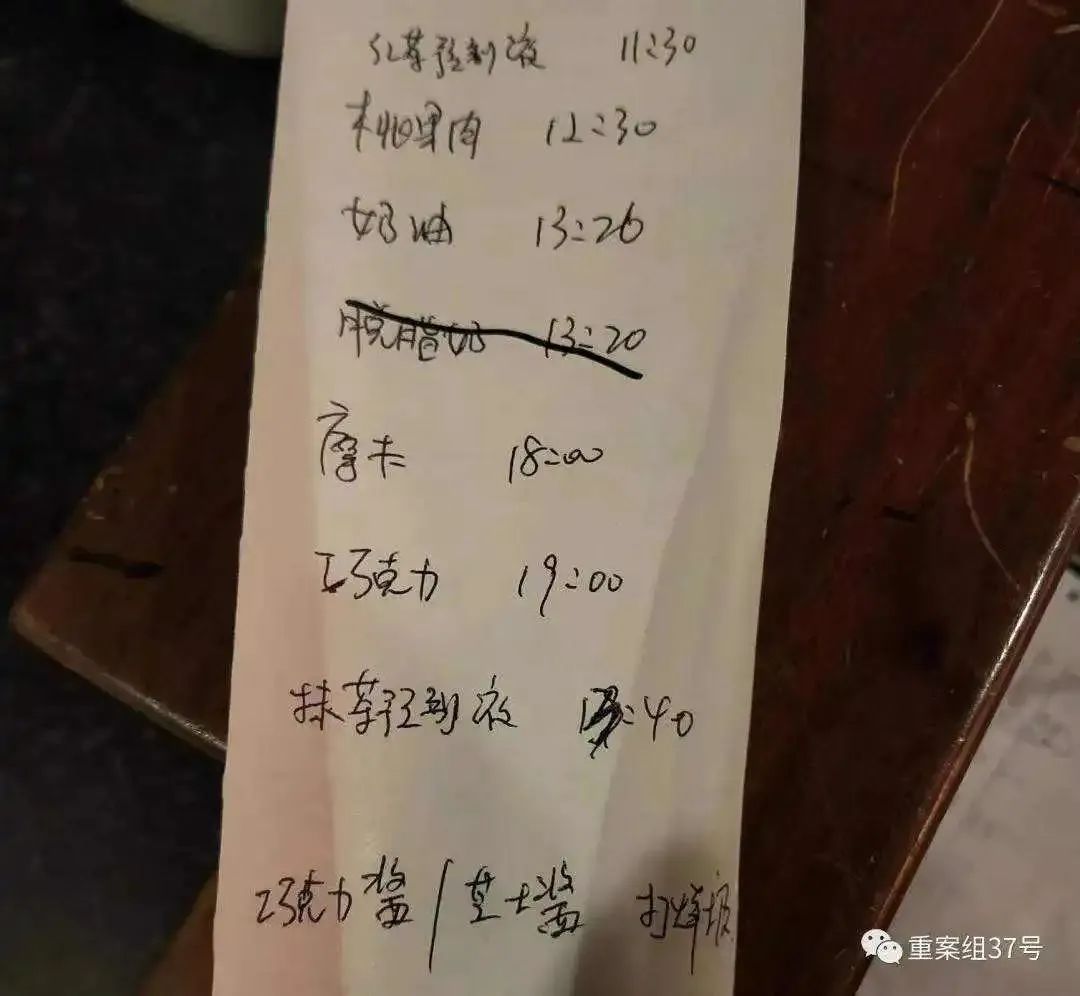 红茶 液 11:30
桃果肉 12:30
奶油 13:26
脱脂奶 13:20
摩卡 18:00
巧克力 19:00
抹茶 液 :40
巧克力酱/芝士酱 打烊报
重案组37号